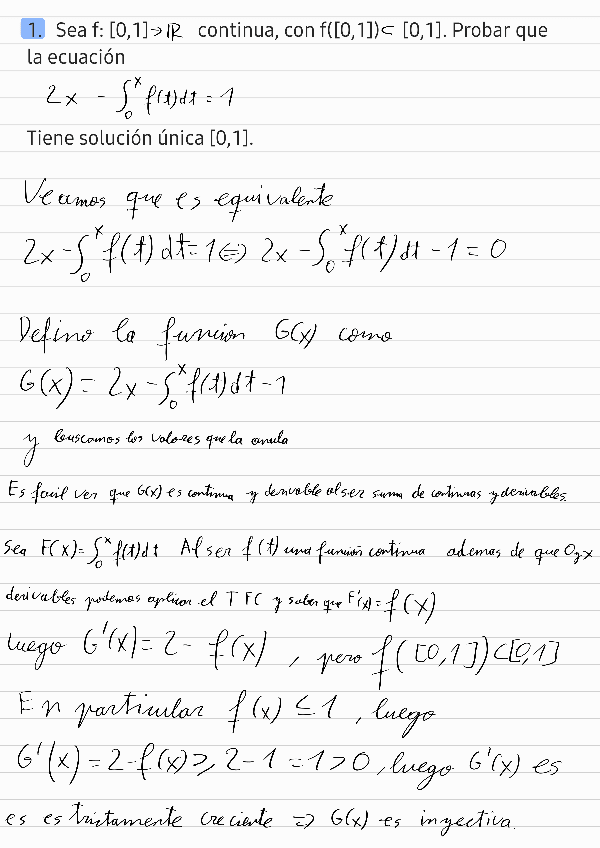 1. Sea f: [0,1]→ℝ continua, con f([0,1])⊂ [0,1]. Probar que
la ecuación
2x - ∫₀ˣ f(t)dt = 1
Tiene solución única [0,1].
Veamos que es equivalente
2x - ∫₀ˣ f(t) dt = 1 ⇔ 2x - ∫₀ˣ f(t) dt - 1 = 0
Defino la función G(x) como
G(x) = 2x - ∫₀ˣ f(t)dt - 1
y buscamos los valores que la anula
Es facil ver que G(x) es continua y derivable al ser suma de continuas y derivables.
Sea F(x) = ∫₀ˣ f(t)dt Al ser f(t) una función continua ademas de que 0 y x
derivables podemos aplicar el TFC y saber que F'(x) = f(x)
luego G'(x) = 2 - f(x) , pero f([0,1]) ⊂ [0,1]
En particular f(x) ≤ 1 , luego
G'(x) = 2 - f(x) ≥ 2 - 1 = 1 > 0 , luego G'(x) es
es estrictamente creciente ⇒ G(x) es inyectiva.